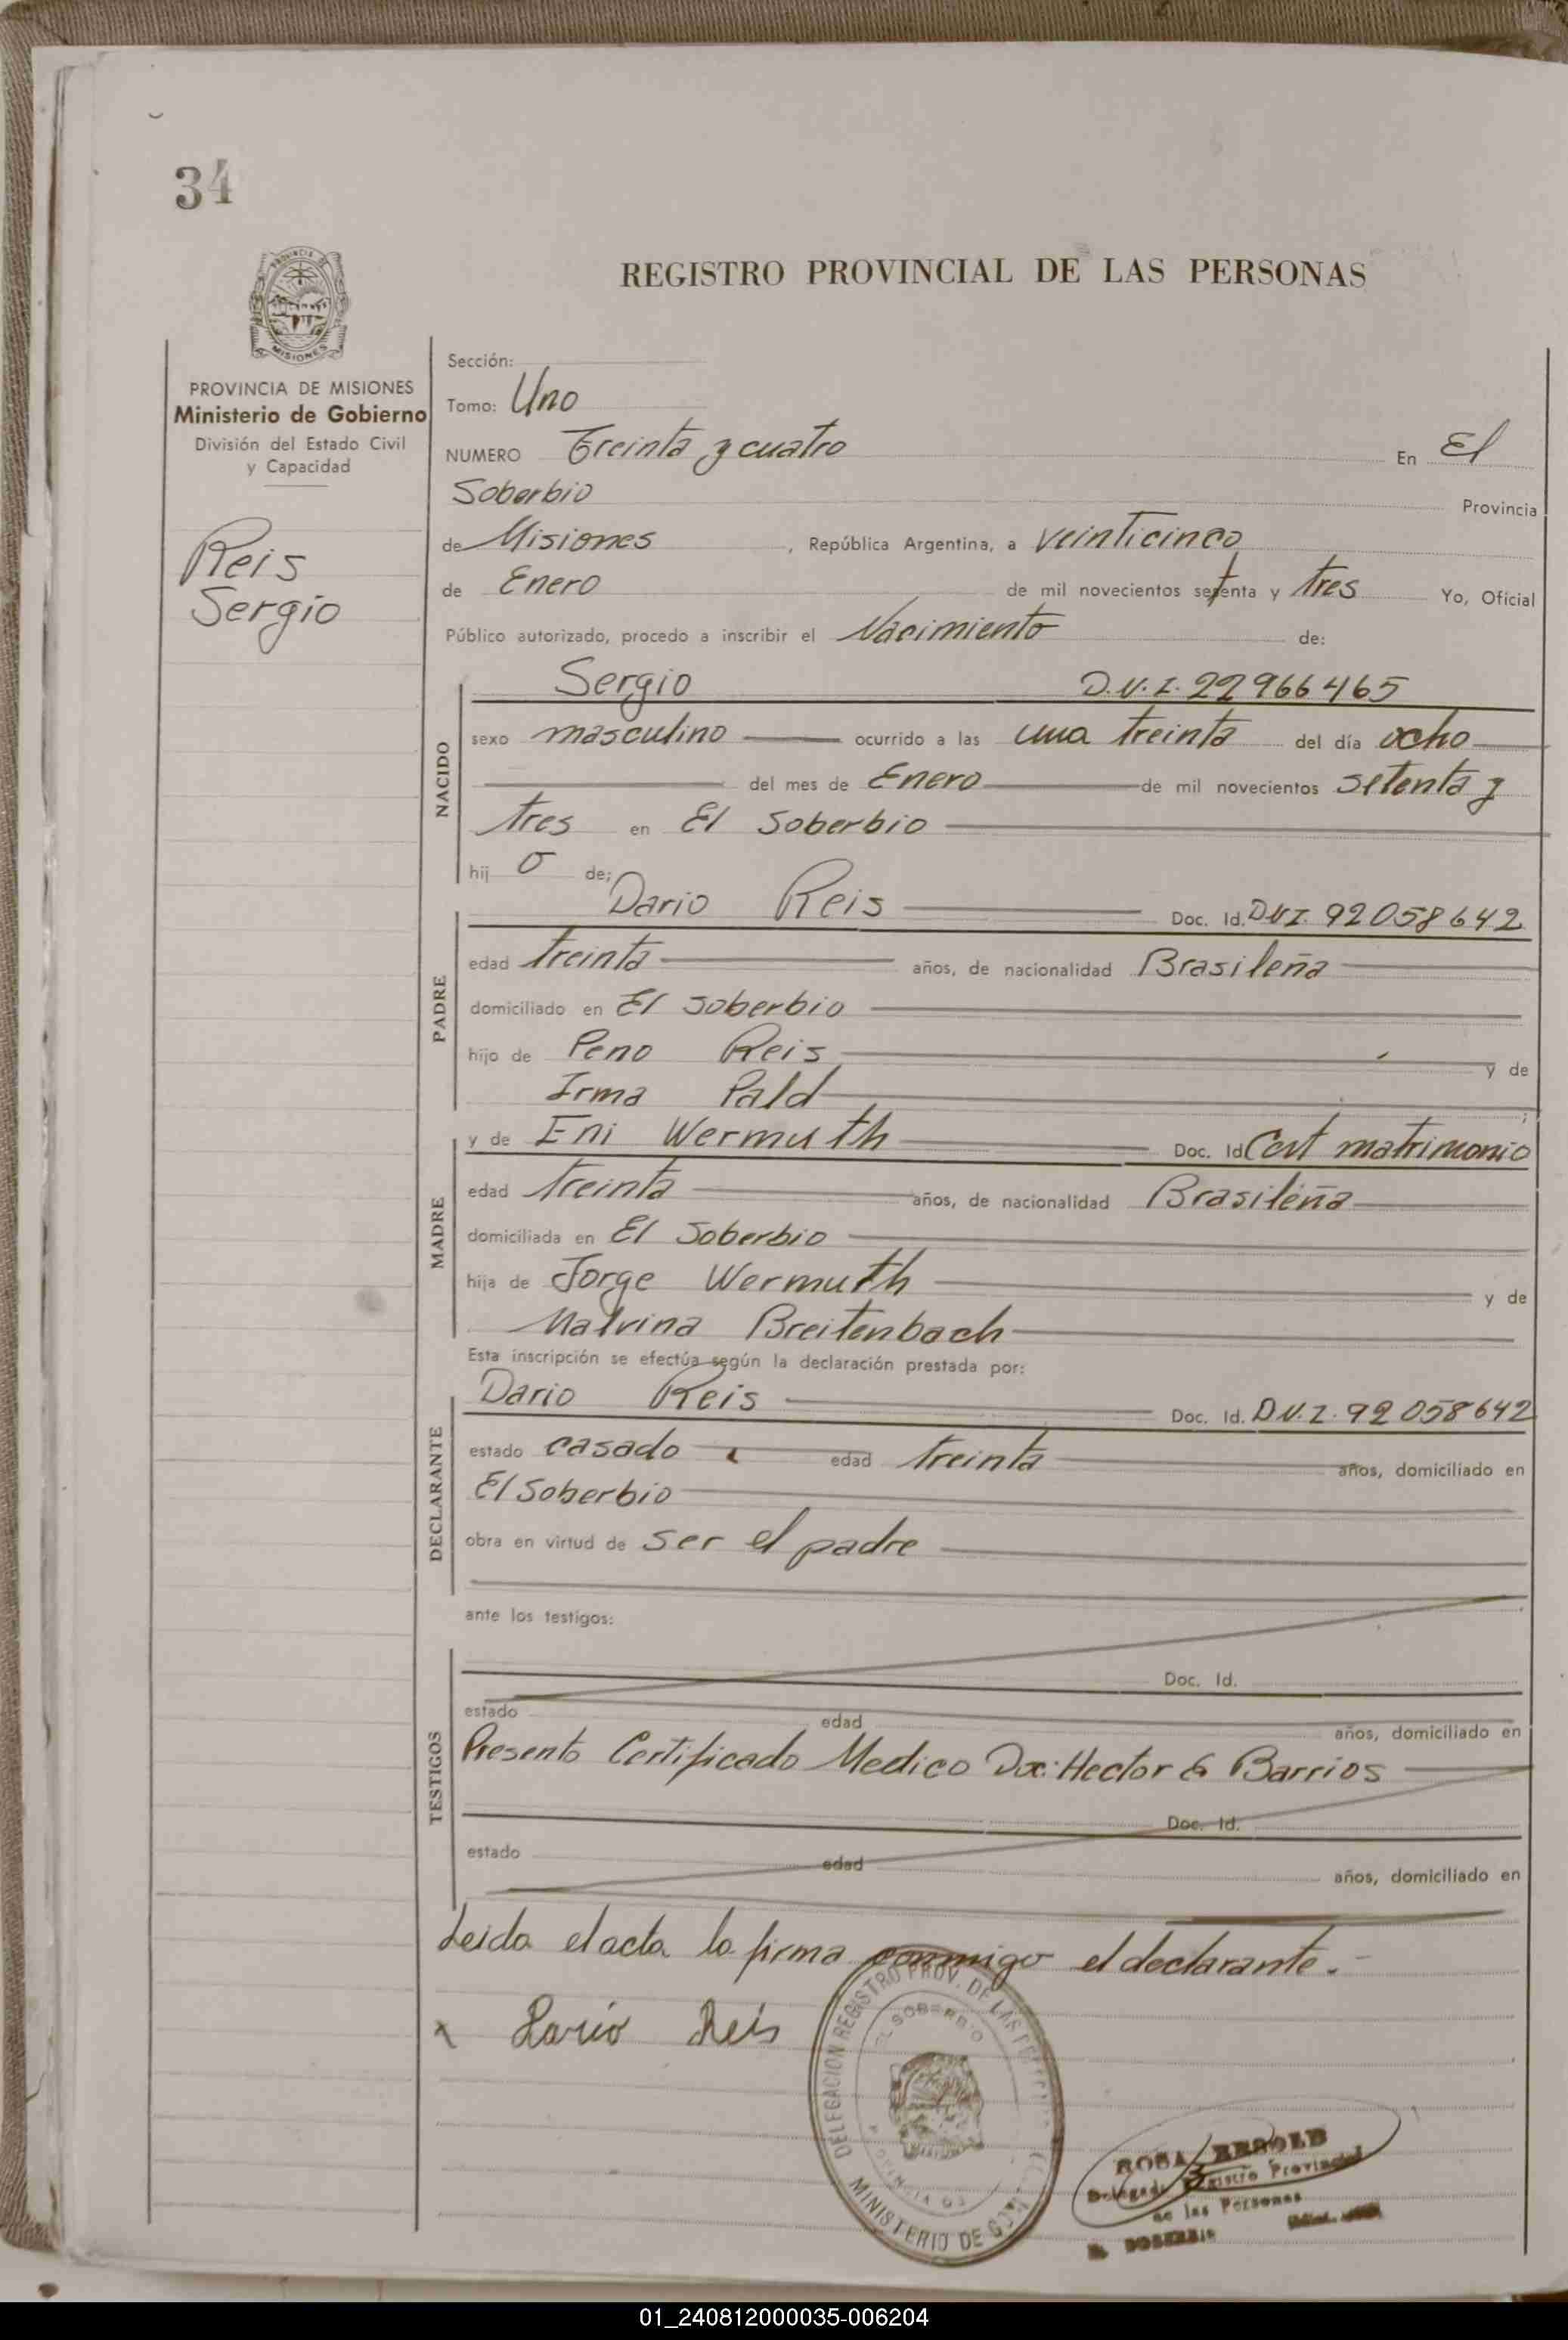 34
REGISTRO PROVINCIAL DE LAS PERSONAS
PROVINCIA DE MISIONES
MISIONES
PROVINCIA DE MISIONES
Ministerio de Gobierno
División del Estado Civil
y Capacidad
Reis
Sergio
Sección:
Tomo: Uno
NUMERO Treinta y cuatro En El
Soberbio Provincia
de Misiones , República Argentina, a veinticinco
de Enero de mil novecientos setenta y tres Yo, Oficial
Público autorizado, procedo a inscribir el Nacimiento de:
NACIDO
Sergio D.N.I. 22966465
sexo masculino ocurrido a las una treinta del día ocho
del mes de Enero de mil novecientos setenta y
tres en El Soberbio
hij o de;
PADRE
Dario Reis Doc. Id. DNI. 92058642
edad treinta años, de nacionalidad Brasileña
domiciliado en El Soberbio
hijo de Peno Reis y de
Irma Pald ;
MADRE
y de Eni Wermuth Doc. Id Cert matrimonio
edad treinta años, de nacionalidad Brasileña
domiciliada en El Soberbio
hija de Jorge Wermuth y de
Malvina Breitenbach
Esta inscripción se efectúa según la declaración prestada por:
DECLARANTE
Dario Reis Doc. Id. D.N.I. 92 058642
estado casado edad treinta años, domiciliado en
El Soberbio
obra en virtud de ser el padre
ante los testigos:
TESTIGOS
Doc. Id.
estado edad años, domiciliado en
Presento Certificado Medico Doc: Hector G Barrios
Doc. Id.
estado edad años, domiciliado en
Leida el acta la firma conmigo el declarante.-
x Dario Reis
DELEGACION REGISTRO PROV. DE LAS
EL SOBERBIO
PROVINCIA DE
MINISTERIO DE
ROSA
Registro Provincial
de las Personas
SOBERBIO
01_240812000035-006204